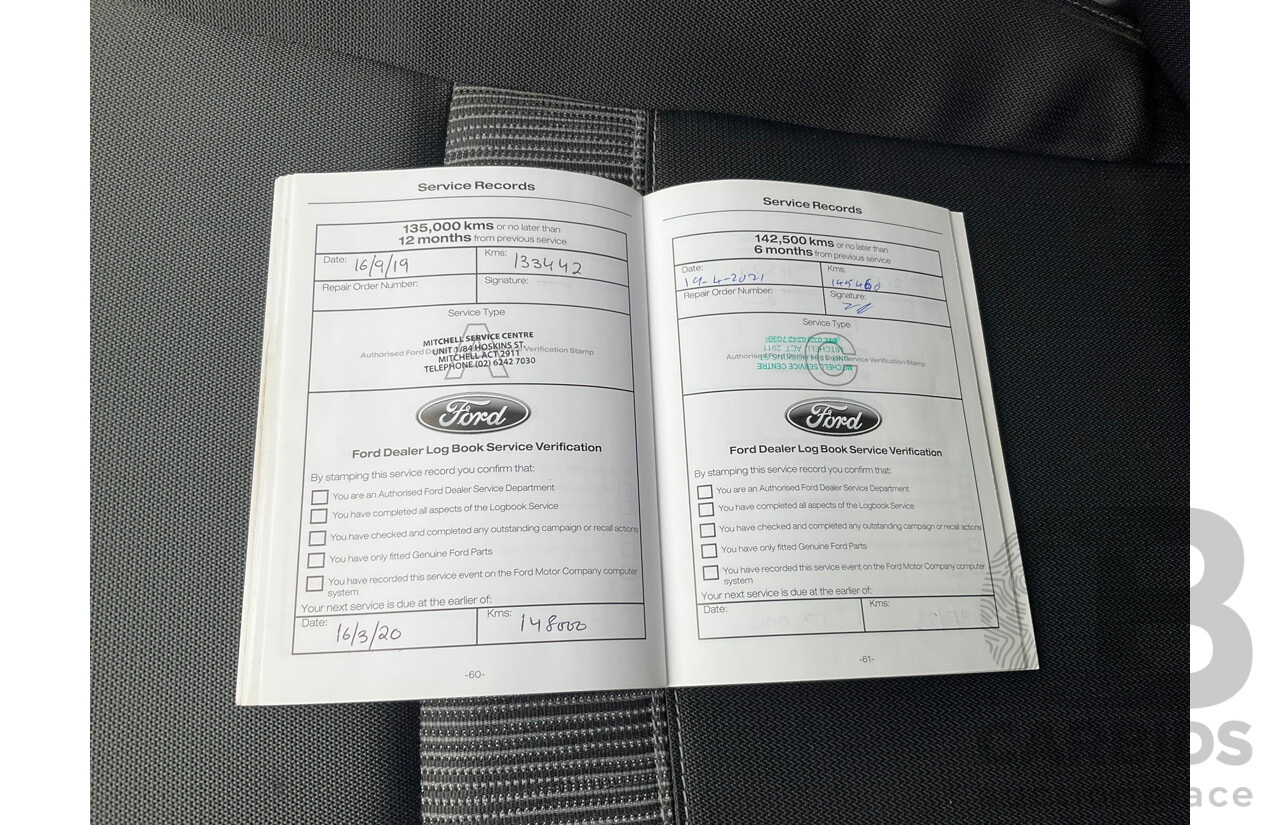 Service Records
135,000 kms or no later than
12 months from previous service
Date: 16/9/19
Kms: 133442
Repair Order Number:
Signature:
Service Type
A
Authorised Ford Dealer Service Verification Stamp
MITCHELL SERVICE CENTRE
UNIT 1/84 HOSKINS ST.
MITCHELL ACT 2911
TELEPHONE (02) 6242 7030
Ford
Ford Dealer Log Book Service Verification
By stamping this service record you confirm that:
You are an Authorised Ford Dealer Service Department
You have completed all aspects of the Logbook Service
You have checked and completed any outstanding campaign or recall actions
You have only fitted Genuine Ford Parts
You have recorded this service event on the Ford Motor Company computer
system
Your next service is due at the earlier of:
Date: 16/3/20
Kms: 148000
-60-
Service Records
142,500 kms or no later than
6 months from previous service
Date: 19-4-2021
Kms: 145460
Repair Order Number:
Signature:
Service Type
C
Authorised Ford Dealer Service Verification Stamp
MITCHELL SERVICE CENTRE
MITCHELL ACT 2911
Ford
Ford Dealer Log Book Service Verification
By stamping this service record you confirm that:
You are an Authorised Ford Dealer Service Department
You have completed all aspects of the Logbook Service
You have checked and completed any outstanding campaign or recall actions
You have only fitted Genuine Ford Parts
You have recorded this service event on the Ford Motor Company computer
system
Your next service is due at the earlier of:
Date:
Kms:
-61-